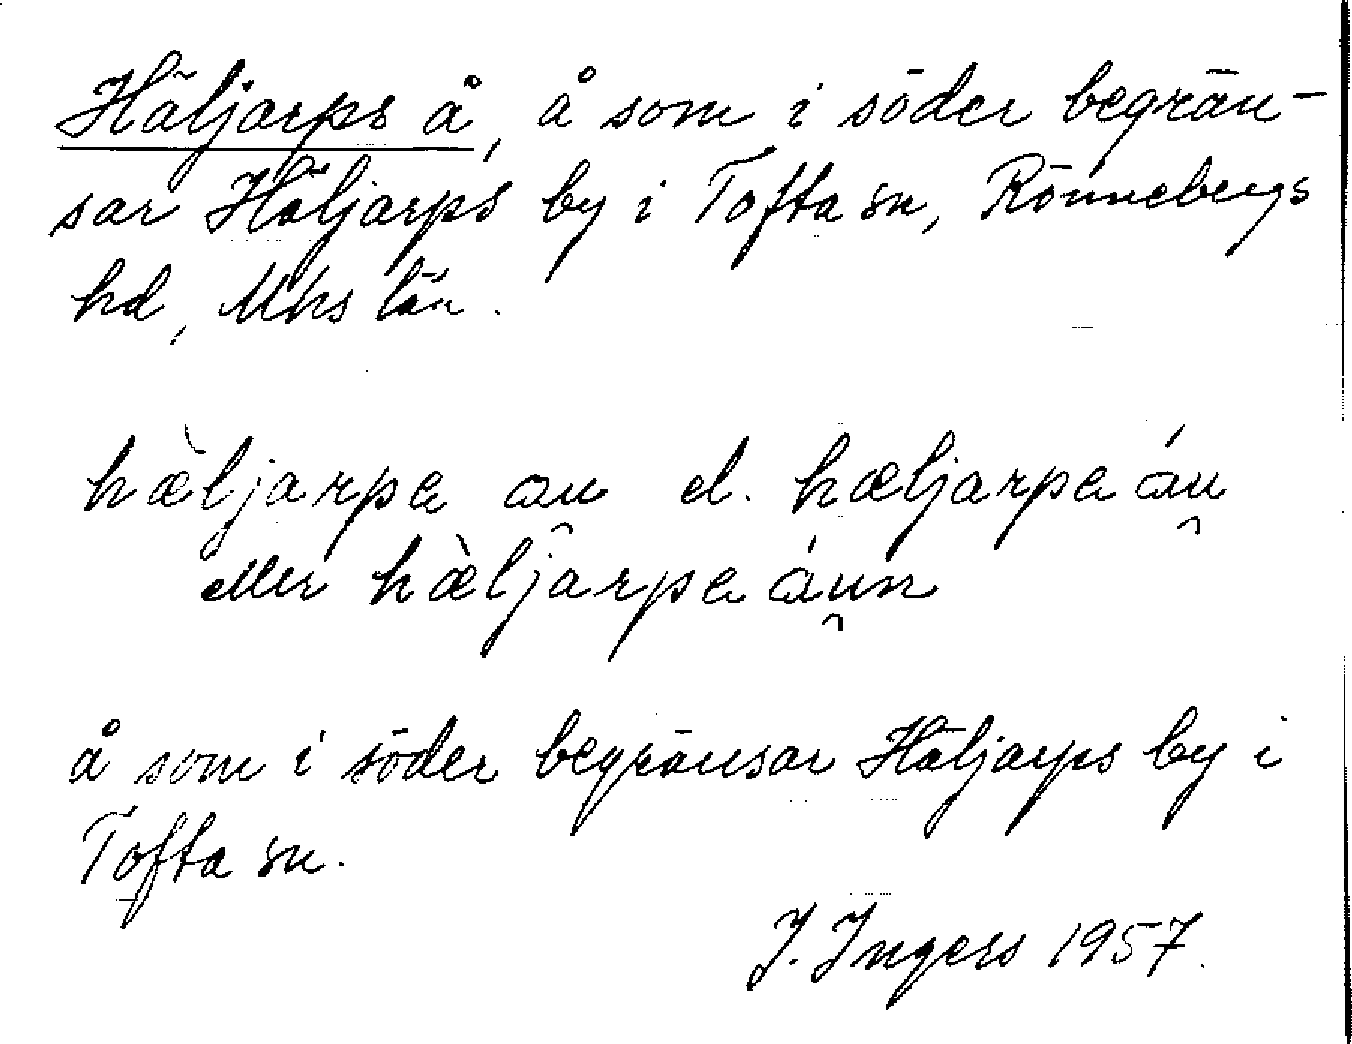 Häljarps å, å som i söder begrän-
sar Häljarps by i Tofta sn, Rönnebergs
hd, Mhs län.
hæ̀ljarpa au̯ el. hæljarpa áu̯
eller hæ̀ljarpa áu̯n
å som i söder begränsar Häljarps by i
Tofta sn.
J. Ingers 1957.